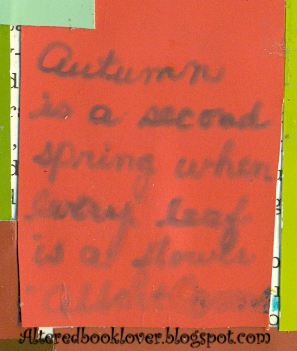 Autumn
is a second
spring when
every leaf
is a
Alteredbooklover.blogspot.com